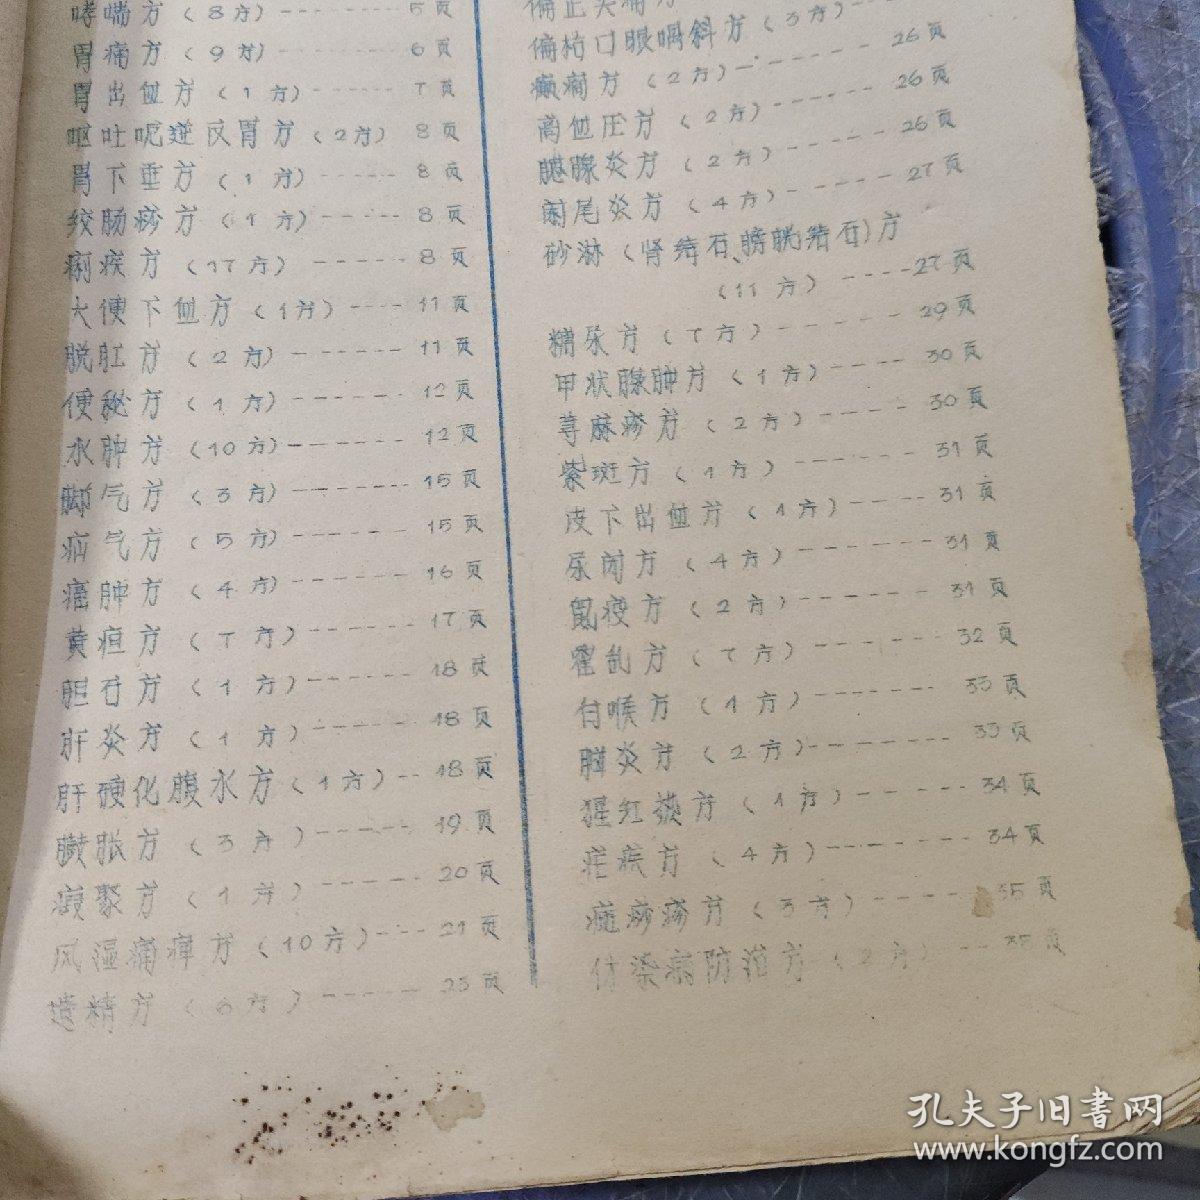 哮喘方(8方)--------5页
胃痛方(9方)--------6页
胃出血方(1方)------7页
呕吐呃逆反胃方(2方) 8页
胃下垂方(1方)-----8页
绞肠痧方(1方)-----8页
痢疾方(17方)------8页
大便下血方(1方)----11页
脱肛方(2方)------11页
便秘方(1方)------12页
水肿方(10方)------12页
脚气方(3方)-------15页
疝气方(5方)------15页
疟肿方(4方)------16页
黄疸方(7方)------17页
胆石方(1方)------18页
肝炎方(1方)-----18页
肝硬化腹水方(1方)--18页
臌胀方(3方)------19页
癥聚方(1方)------20页
风湿痛痹方(10方)---21页
遗精方(6方)------23页
偏正头痛方
偏枯口眼喎斜方(3方)---26页
癫痫方(2方)-------26页
高血压方(2方)------26页
胰腺炎方(2方)------27页
阑尾炎方(4方)-----
砂淋(肾结石、膀胱结石)方
(11方)----27页
糖尿方(7方)------29页
甲状腺肿方(1方)----30页
荨麻疹方(2方)-----30页
紫斑方(1方)------31页
皮下出血方(1方)-----31页
尿闭方(4方)-------31页
鼠疫方(2方)-------31页
霍乱方(7方)------32页
白喉方(1方)-------33页
脑炎方(2方)-------33页
猩红热方(1方)------34页
疟疾方(4方)------34页
麻痧疹方(3方)-----35页
传染病防治方(2方)--35页
孔夫子旧書网
www.kongfz.com